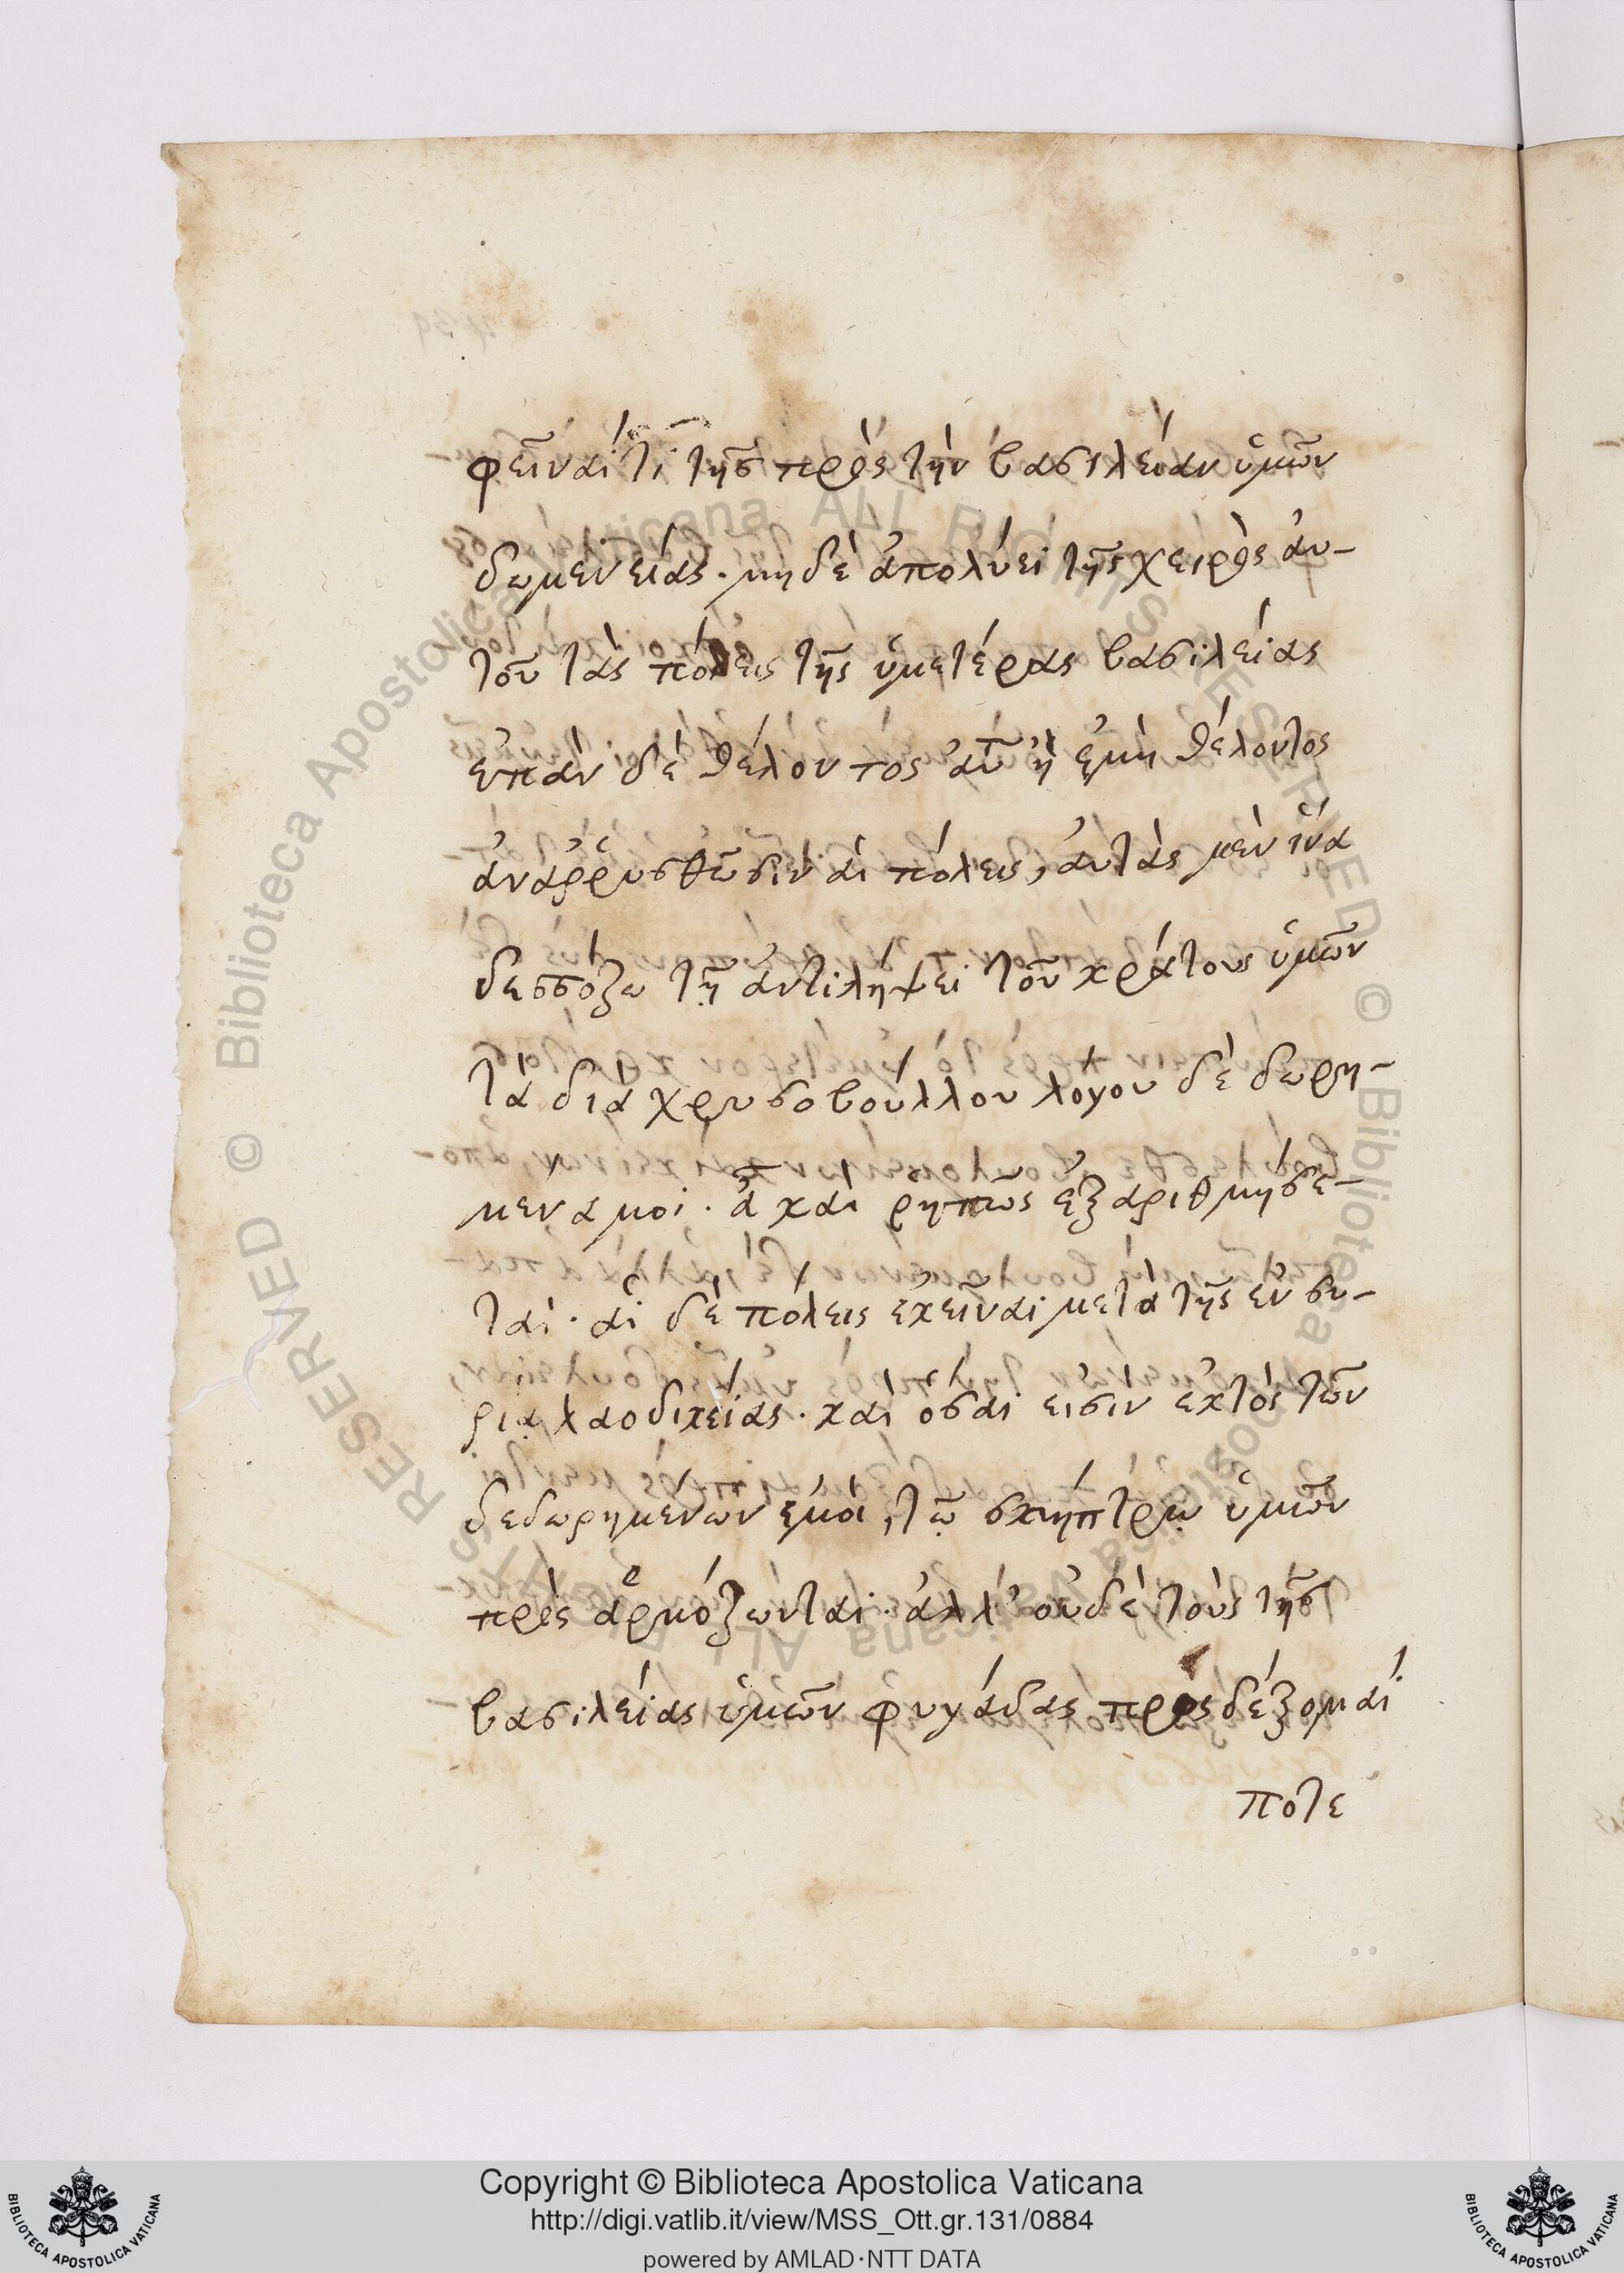 φεῖναί τι τῆς πρὸς τὴν βασιλείαν ὑμῶν
δωμενείας. μηδὲ ἀπολύει τῆς χειρὸς ἀυ-
τοῦ τὰς πόλεις τῆς ὑμετέρας βασιλείας
ἐπὰν δὲ θέλοντος ἀῦ ἢ ἐμὴ θέλοντος
ἀναῤῥυσθῶσιν ἁι πόλεις, ἀυτὰς μὲν ἵνα
δεσπόζω τῇ ἀντιλήψει τοῦ κράτους ὑμῶν
τὰ διὰ χρυσοβούλλου λόγου δὲ δωρη-
μένα μοι. ἃ καὶ ρητῶς ἐξαριθμήσε-
ται. ἁι δὲ πόλεις ἐκεῖναι μετὰ τῆς ἐν συ-
ρίᾳ λαοδικείας. καὶ ὅσαι εἰσιν ἐκτὸς τῶν
δεδωρημένων ἐμοὶ, τῷ σκήπτρῳ ὑμῶν
πρὸς ἁρμόζωνται. ἀλλ' οὐδὲ τοὺς τῆς
βασιλείας ὑμῶν φυγάδας πρὸς δέξομαί
ποτε
Copyright © Biblioteca Apostolica Vaticana
http://digi.vatlib.it/view/MSS_Ott.gr.131/0884
powered by AMLAD·NTT DATA